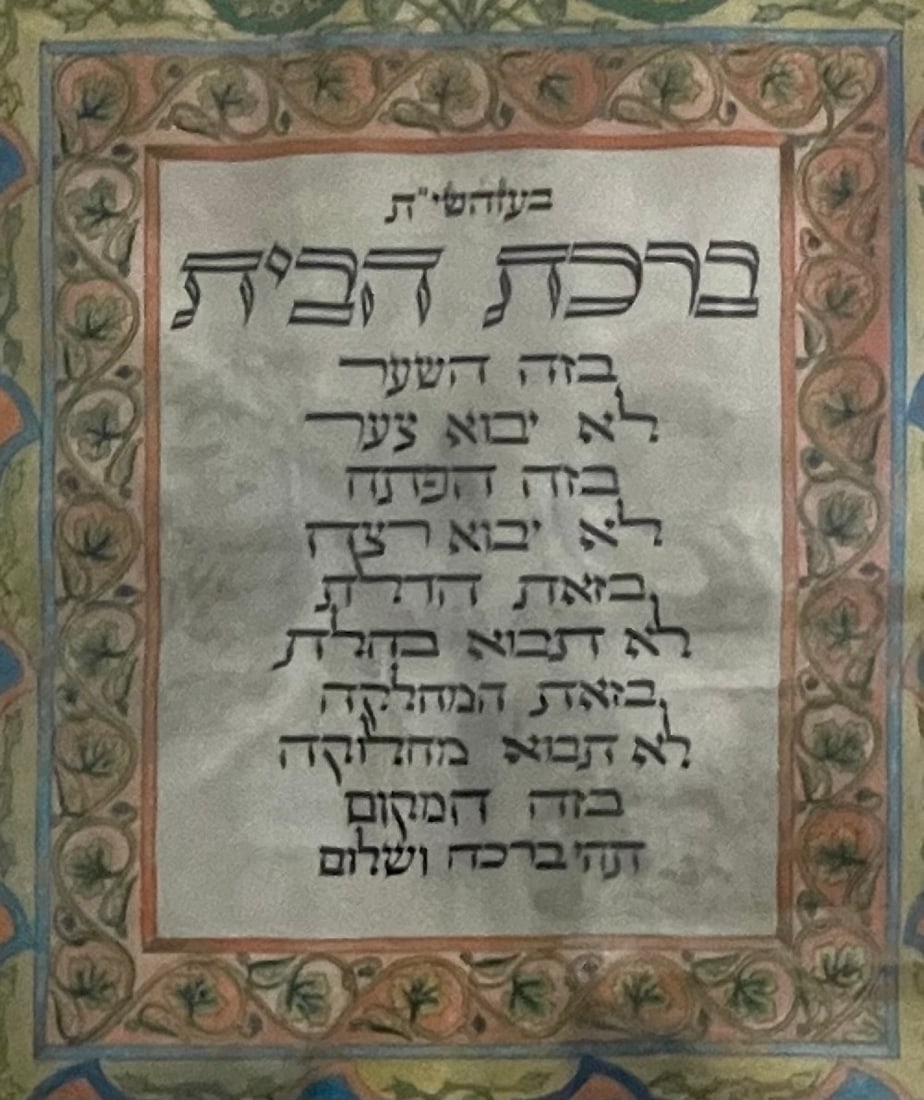 בעזהשי"ת
ברכת הבית
בזה השער
לא יבוא צער
בזה הפתח
לא יבוא רצח
בזאת הדלת
לא תבוא בהלת
בזאת המחלקה
לא תבוא מחלוקה
בזה המקום
תהי ברכה ושלום